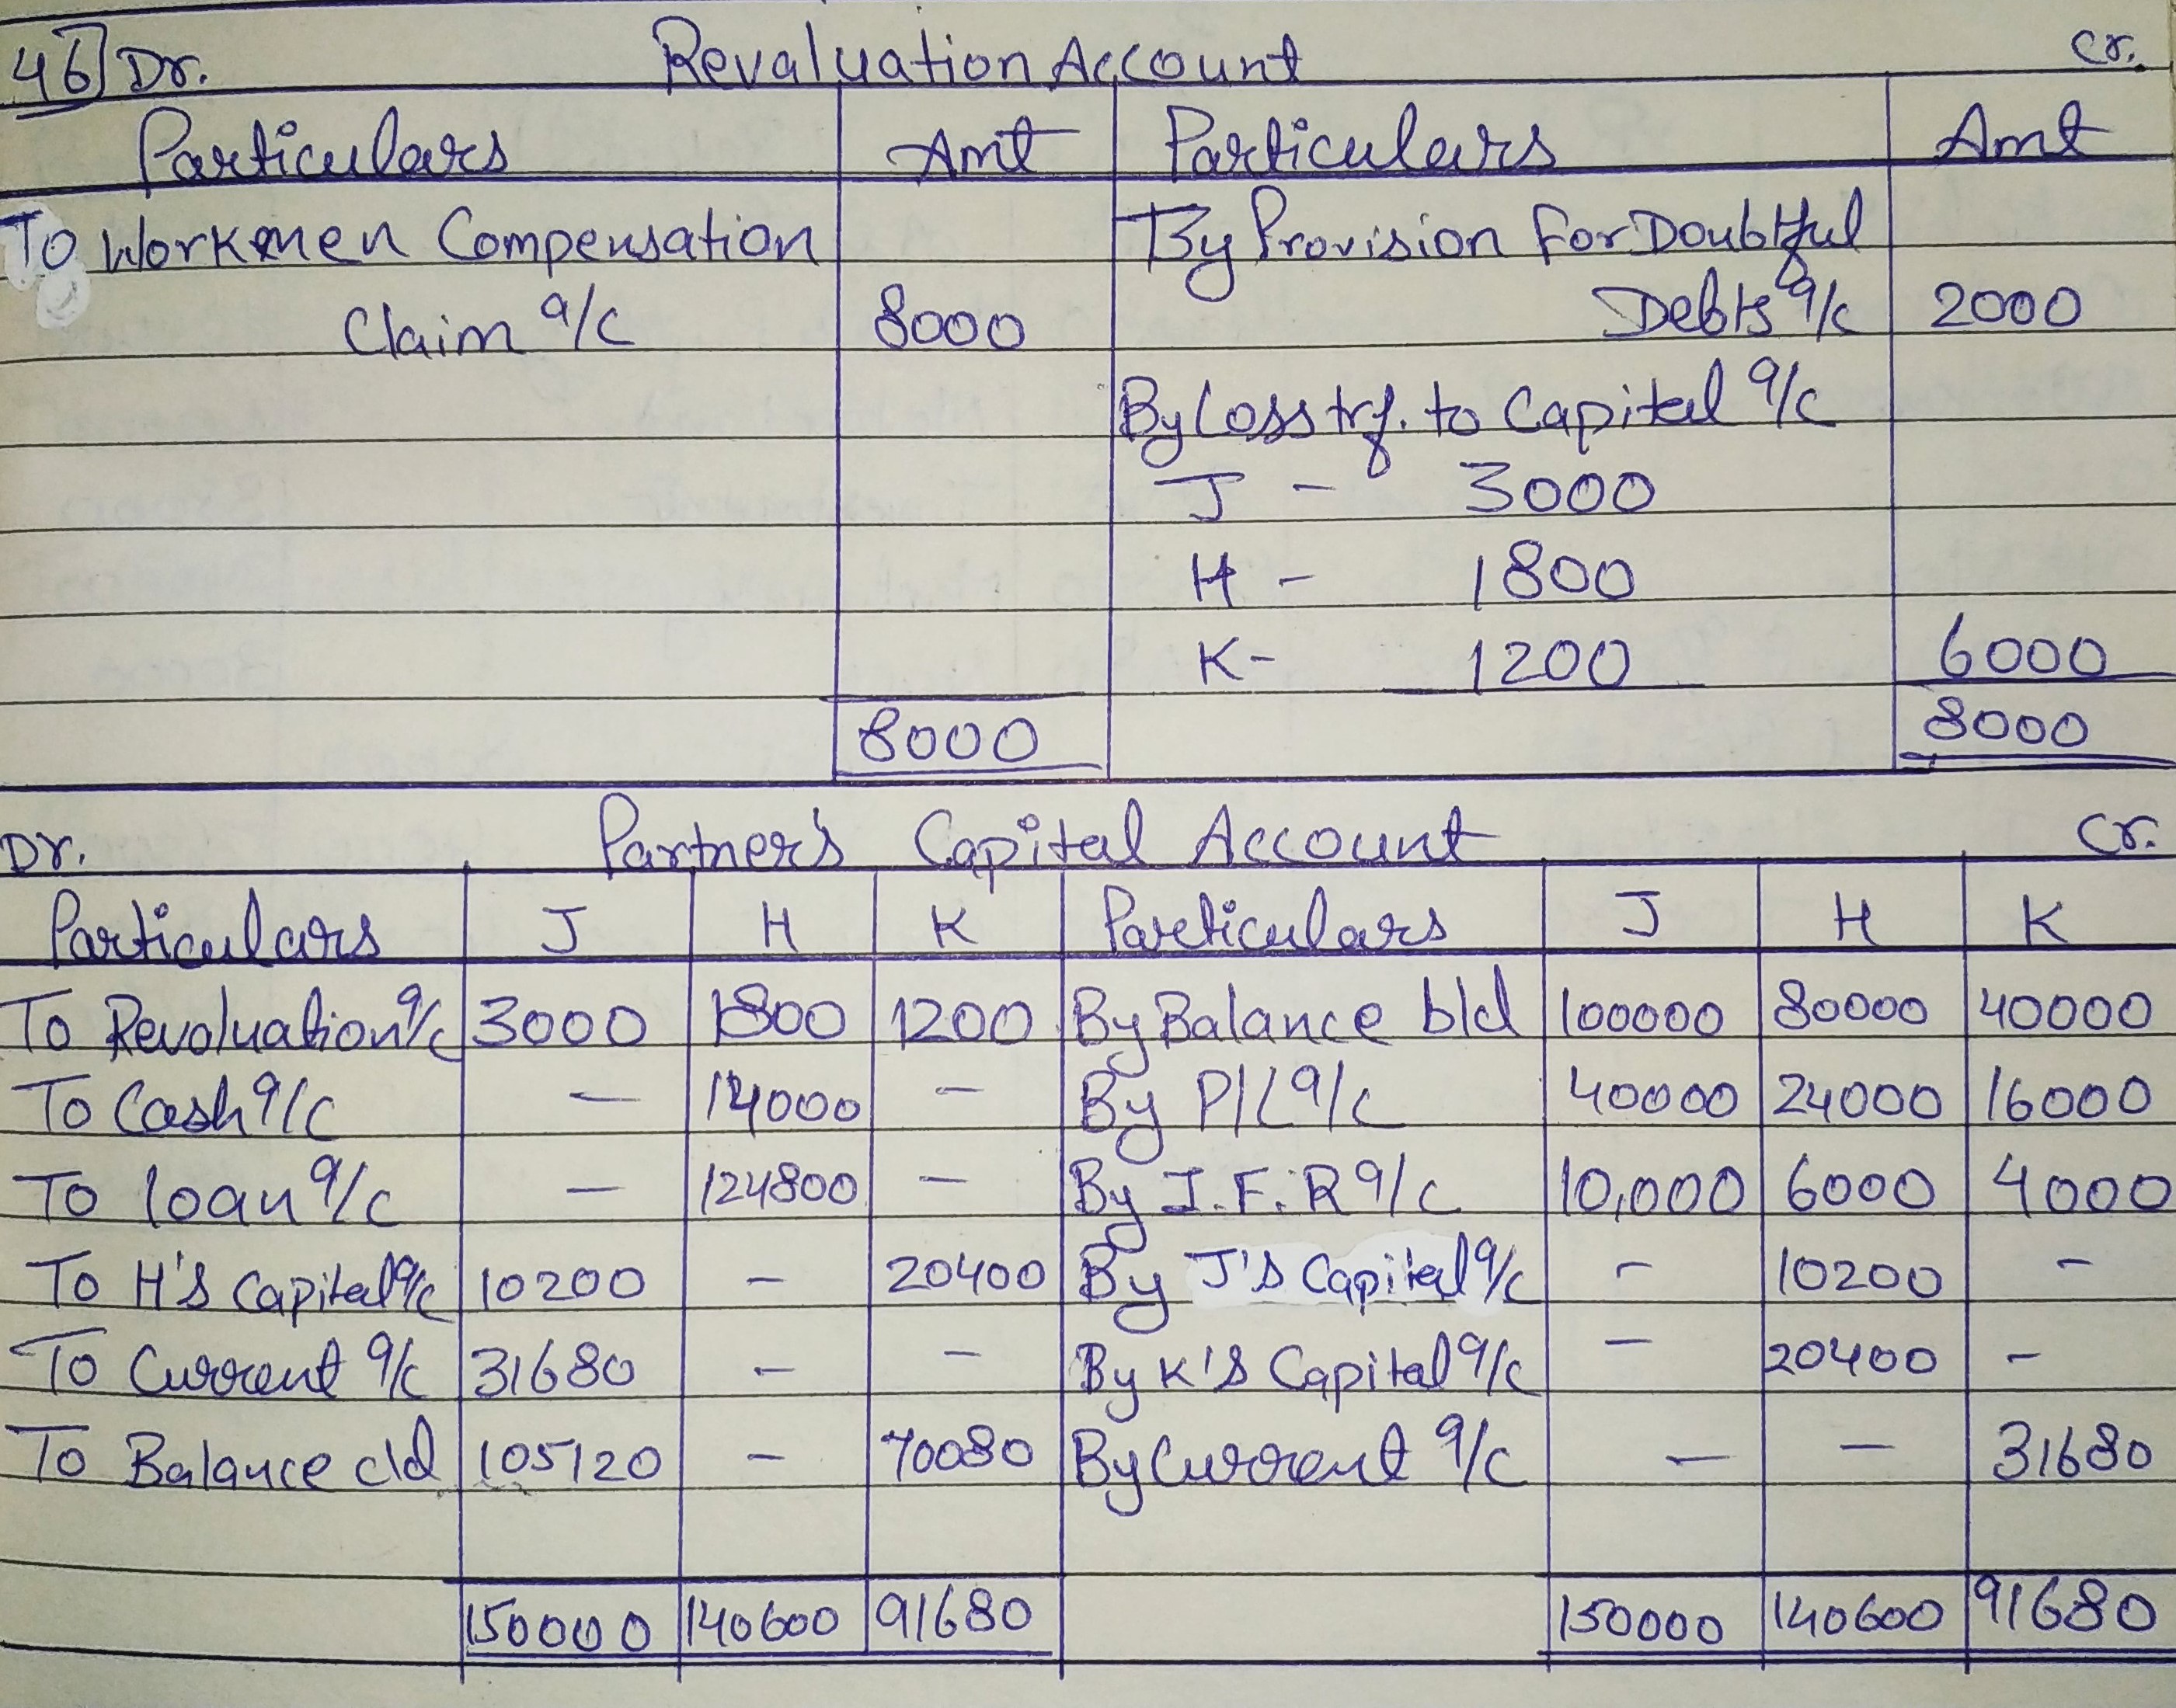 46] Dr. Revaluation Account Cr.
Particulars Amt Particulars Amt
To Workmen Compensation By Provision For Doubtful
Claim a/c 8000 Debts a/c 2000
By Loss trf. to Capital a/c
J - 3000
H - 1800
K - 1200 6000
8000 8000
Dr. Partner's Capital Account Cr.
Particulars J H K Particulars J H K
To Revaluation a/c 3000 1800 1200 By Balance b/d 100000 80000 40000
To Cash a/c - 14000 - By P/L a/c 40000 24000 16000
To loan a/c - 124800 - By I.F.R a/c 10,000 6000 4000
To H's Capital a/c 10200 - 20400 By J's Capital a/c - 10200 -
To Current a/c 31680 - - By K's Capital a/c - 20400 -
To Balance c/d 105120 - 70080 By Current a/c - - 31680
150000 140600 91680 150000 140600 91680